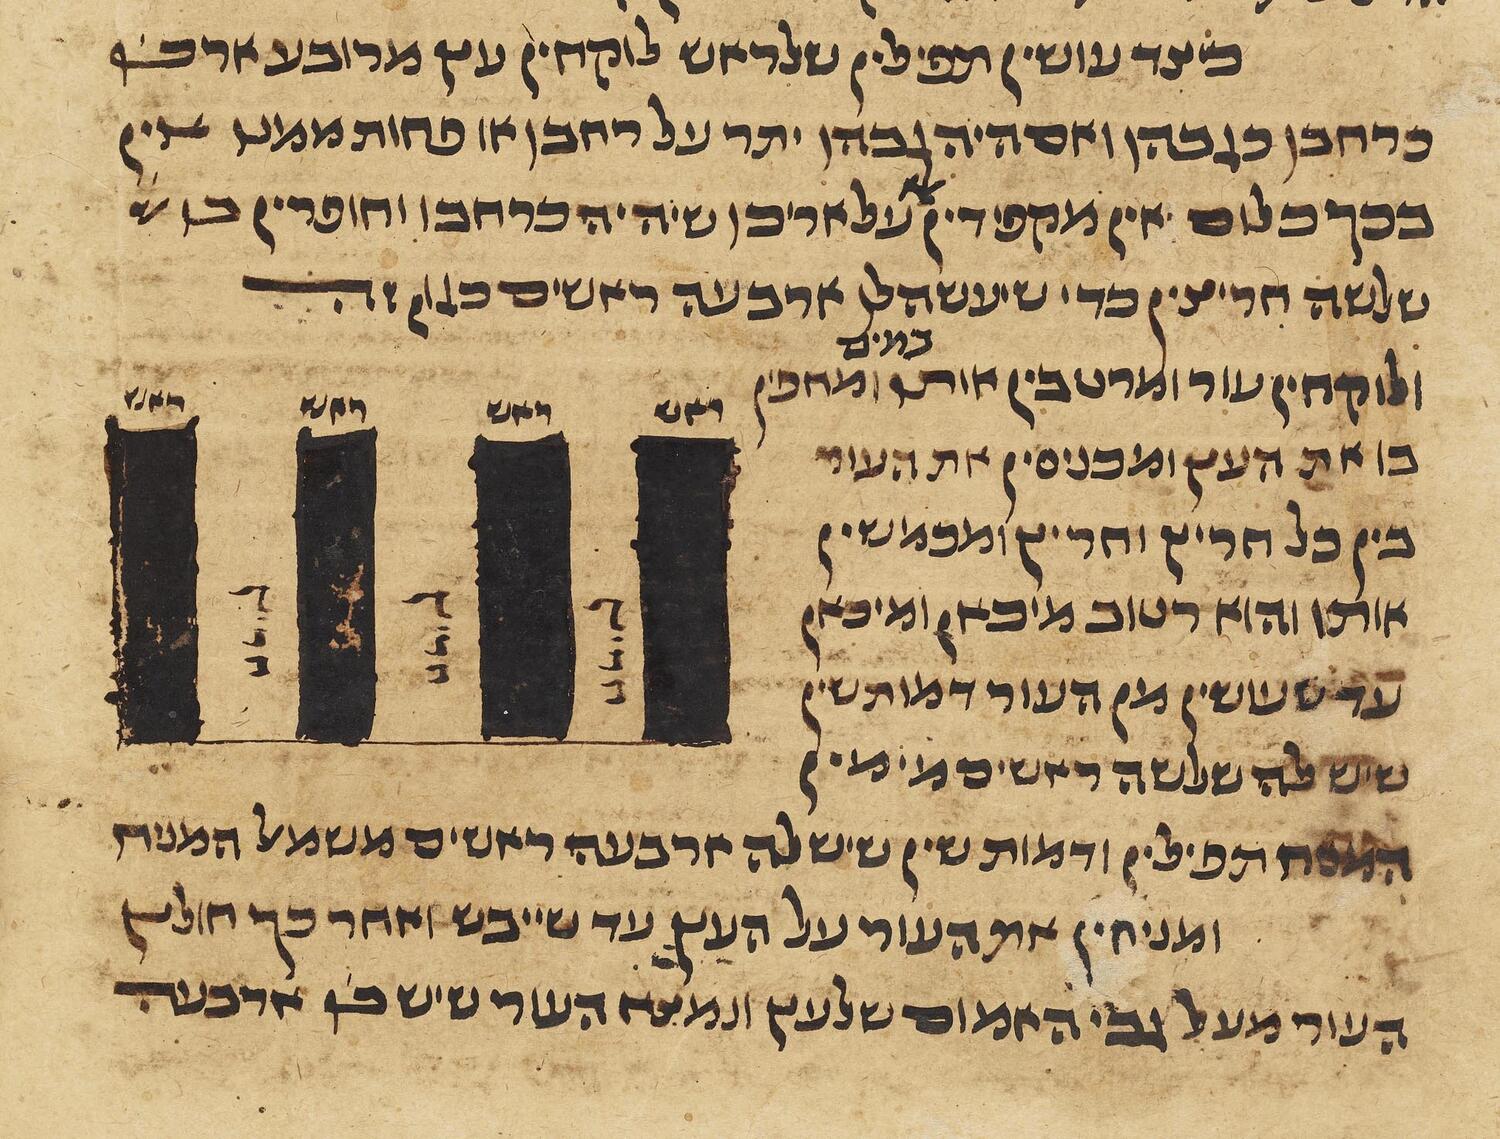 כיצד עושין תפילין שלראש לוקחין עץ מרובע ארכו
כרחבו כגבהו ואם היה גבהו יתר על רחבו או פחות ממנו אין
בכך כלום אין מקפידין אלא על ארכו שיהיה כרחבו וחופרין בו
שלשה חריצין כדי שיעשה לו ארבעה ראשים כגון זה
ולוקחין עור ומרטבין אותו במים ומחפין
ראש ראש ראש ראש
בו את העץ ומכניסין את העור
בין כל חריץ וחריץ ומכמשין
חריץ חריץ חריץ
אותו והוא רטוב מיכאן ומיכאן
עד שעושין מן העור דמות שין
שיש לה שלשה ראשים מימין
המנח תפילין ודמות שין שיש לה ארבעה ראשים משמאל המניח
ומניחין את העור על העץ עד שייבש ואחר כך חולץ
העור מעל גבי האמום שלעץ ונמצא העור שיש בו ארבעה